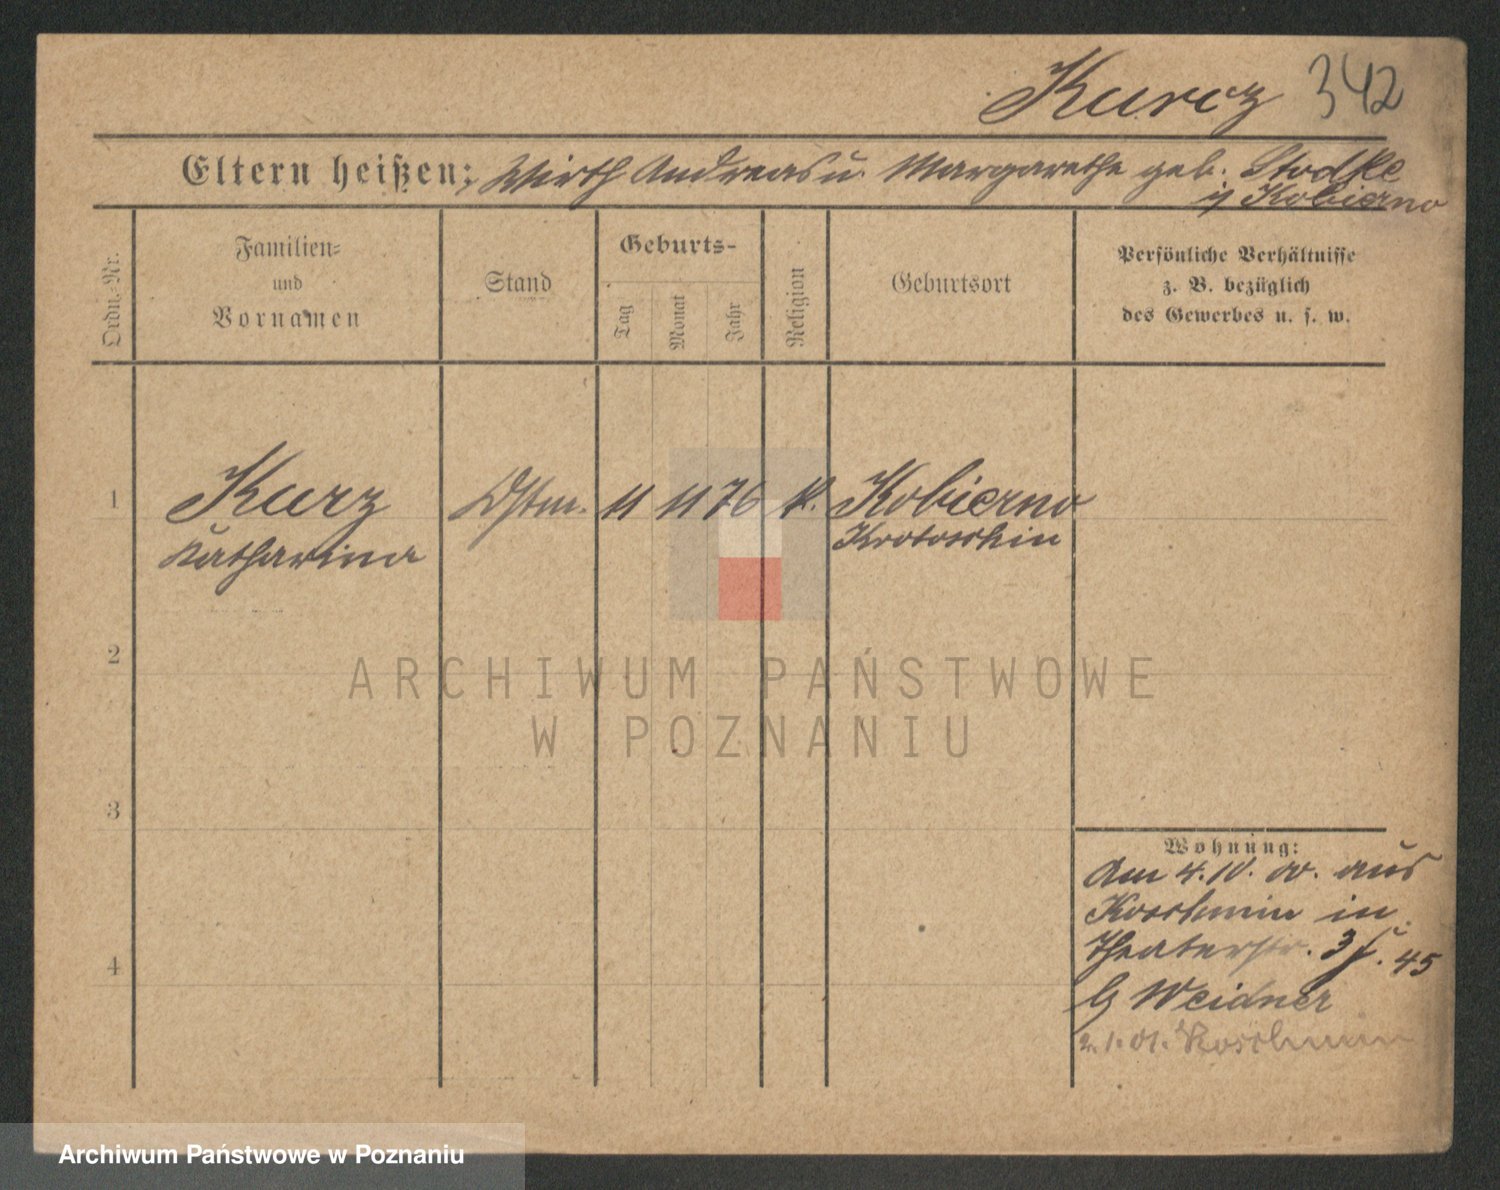 Kurcz 342
Eltern heißen: Wirth Andreas u. Margarethe geb. Stodke
in Kobierno
Ordn.-Nr.
Familien-
und
Vornamen
Stand
Geburts-
Tag
Monat
Jahr
Religion
Geburtsort
Persönliche Verhältnisse
z. B. bezüglich
des Gewerbes u. s. w.
1 Kurz 11 11 76 k. Kobierno
Katharina Krotoschin
2
3
4
Wohnung:
Am 4. IV. 00. aus
Koschmin in
Theaterstr. 3 45
Weidner
2.1.01. Koschmin
ARCHIWUM PAŃSTWOWE
W POZNANIU
Archiwum Państwowe w Poznaniu